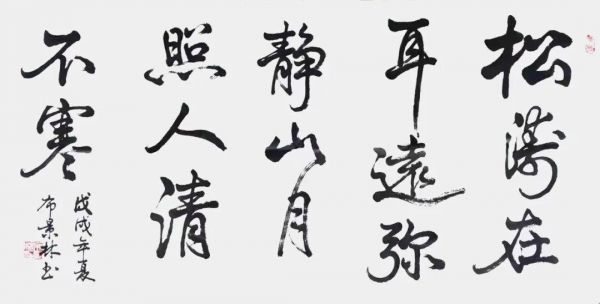 松濤在
耳遠弥
静山月
照人清
不寒
戊戌年夏
布景林书